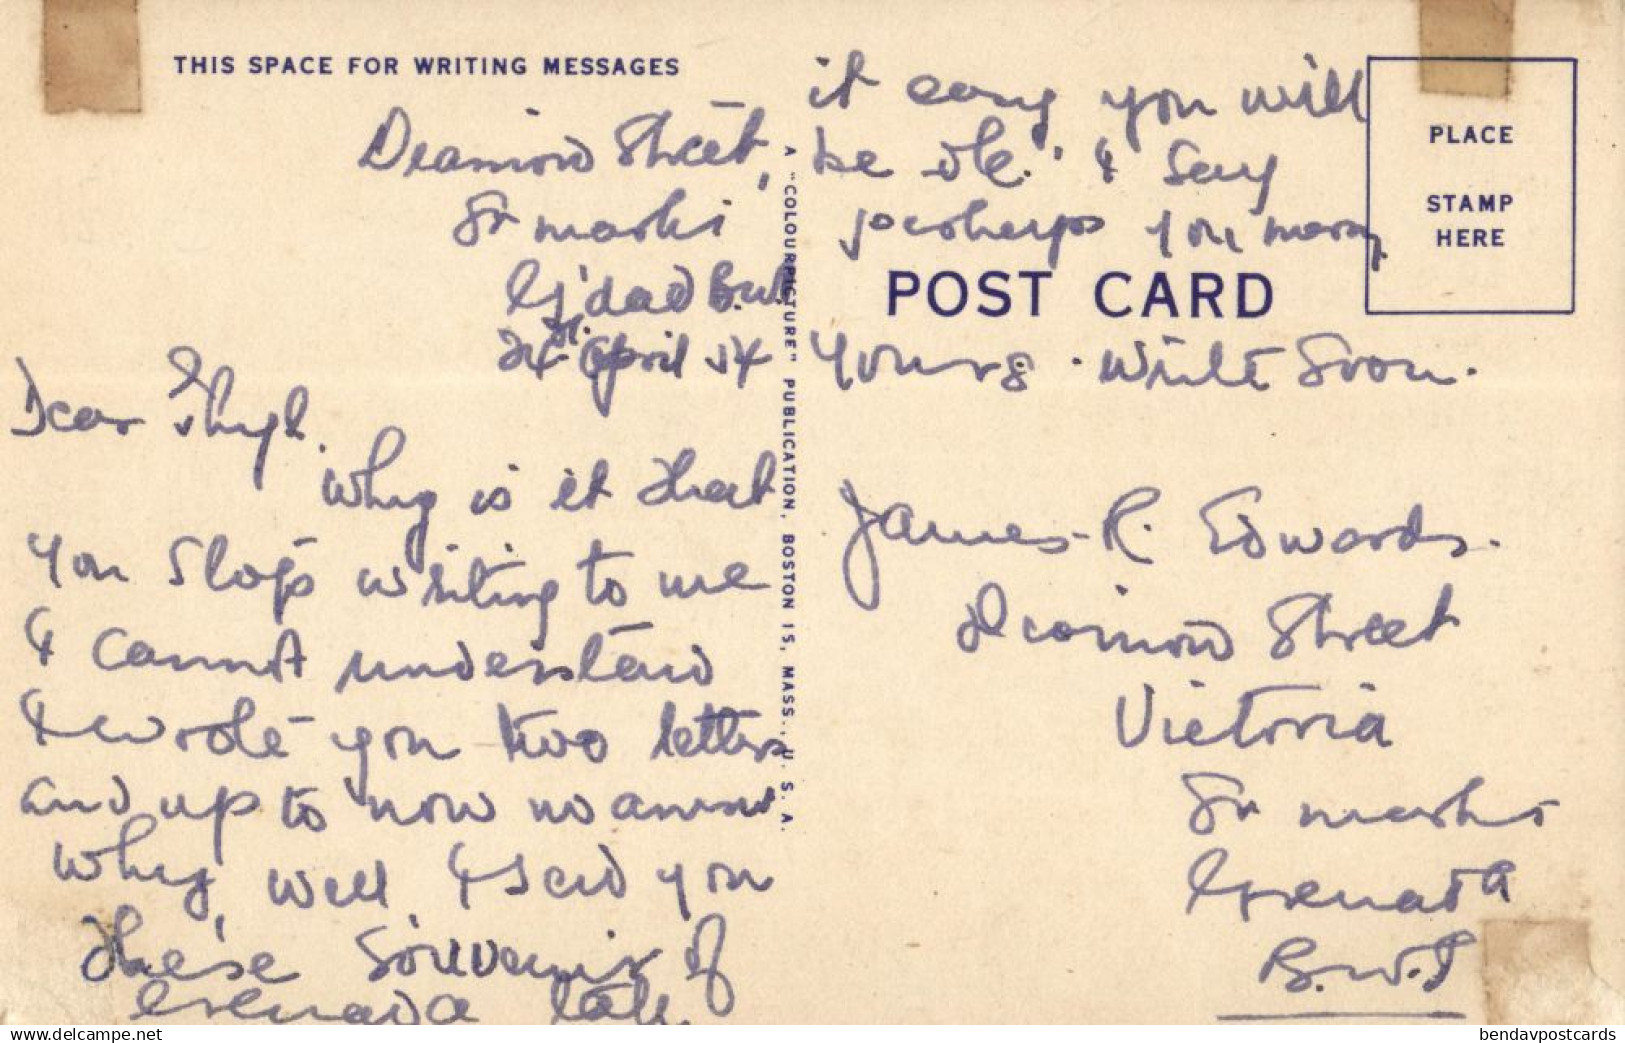 THIS SPACE FOR WRITING MESSAGES
Diamond Street,
St marks
G'dad B.W.I
24th April 54
Dear
Why is it that
you Stops writing to me
I cannot understand
I wrote you two letters
and up to now no answer
Why, well I send you
these Souvenir of
Grenada take
it easy you will
be ok. I Say
perhaps you marry
Yours. Write Soon.
A "COLOURPICTURE" PUBLICATION, BOSTON 15, MASS., U. S. A.
PLACE
STAMP
HERE
POST CARD
James R. Edwards.
Diamond Street
Victoria
St marks
Grenada
B.W.I
delcampe.net
bendavpostcards